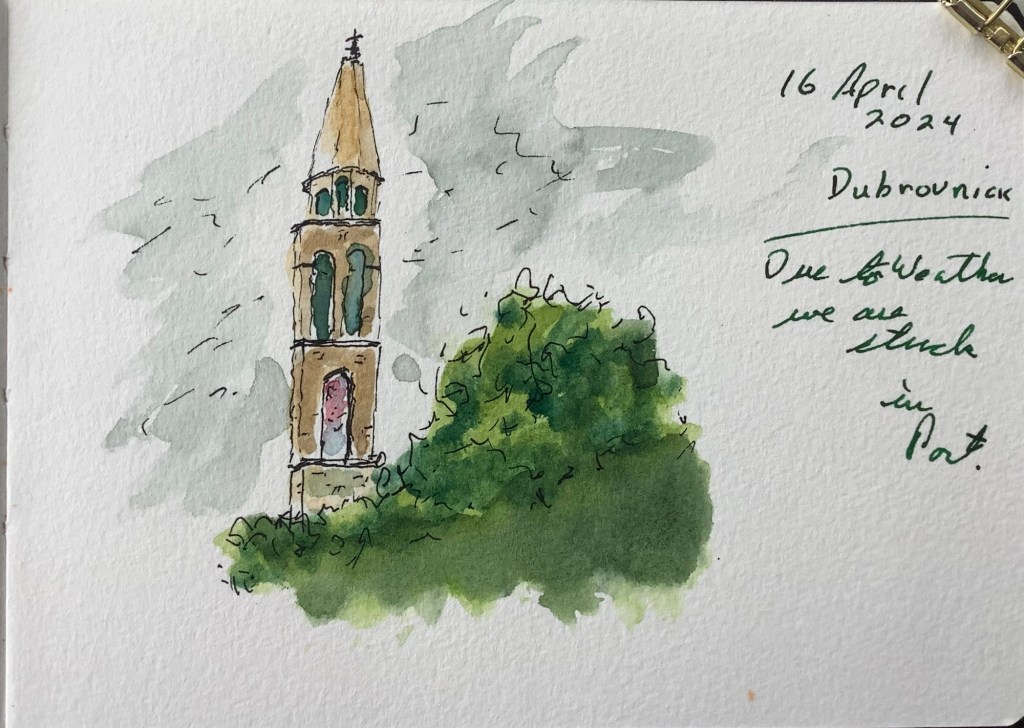 16 April
2024
Dubrovnick
Due to Weather
we are
stuck
in
Port.